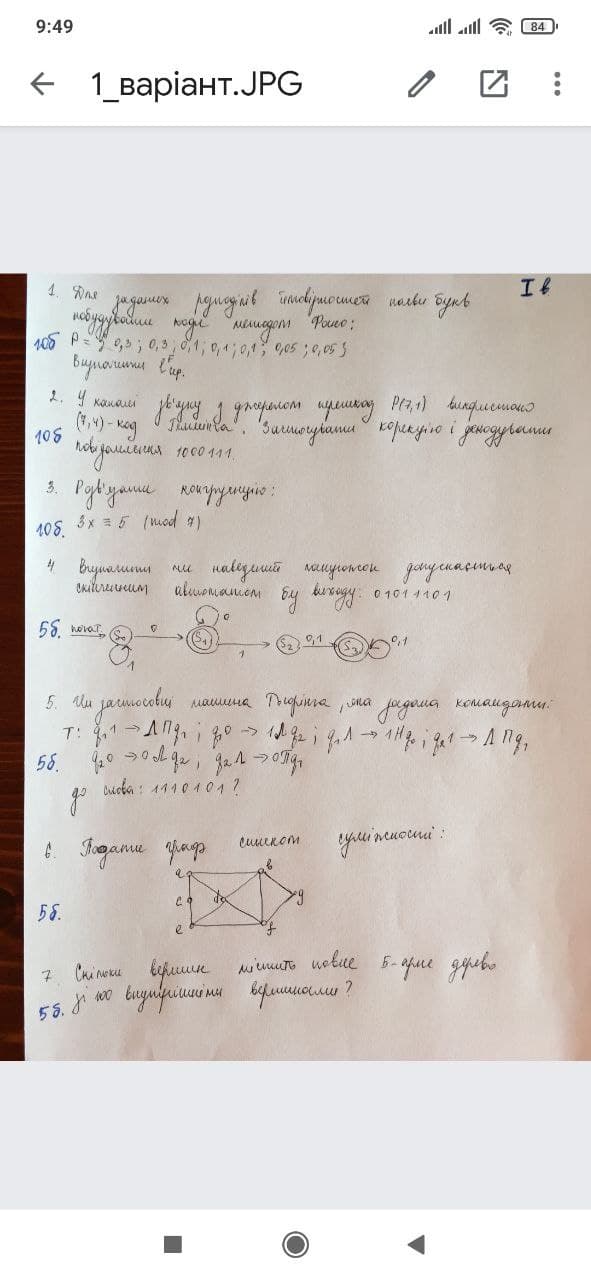 9:49
84
1_варіант.JPG
І в
1. Для заданих розподілів ймовірностей появи букв
побудувати коди методом Фано:
10б P = { 0,3 ; 0,3 ; 0,1 ; 0,1 ; 0,1 ; 0,05 ; 0,05 }
Визначити l^F ср.
2. У каналі зв'язку з джерелом перешкод P(7,1) використано
(7,4)-код Геммінга. Застосувати корекцію і декодувати
10б повідомлення 1000111.
3. Розв'язати конгруенцію:
10б. 3x ≡ 5 (mod 7)
4 Визначити чи наведений ланцюжок допускається
скінченним автоматом без виходу: 01011101
5б. почат. S0 0 S1 0 1 S2 0,1 S3 0,1
1
5. Чи застосовна машина Тьюрінга, яка задана командами:
T: q11 → ΛПq1 ; q10 → 1Лq2 ; q1Λ → 1Нq0 ; q21 → ΛПq1
5б. q20 → 0Лq2 ; q2Λ → 0Пq1
до слова: 1110101 ?
6. Подати граф списком суміжності:
a b
c d g
5б.
e f
7. Скільки вершин містить повне 5-арне дерево
5б. зі 100 внутрішніми вершинами?